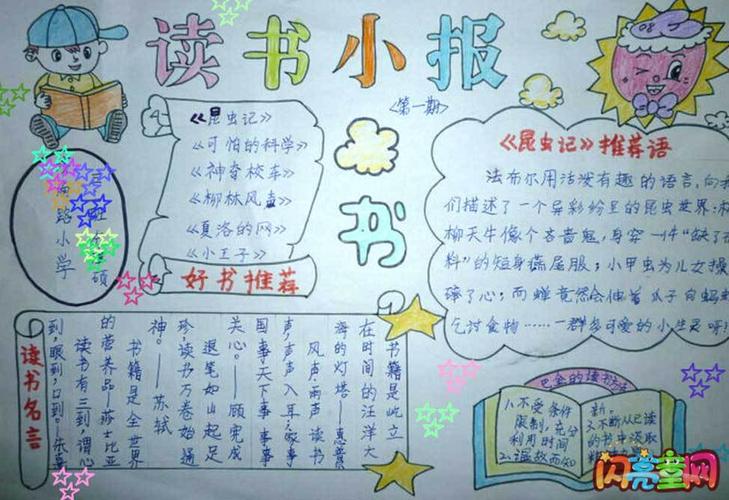 读书小报
<第一期>
《昆虫记》
《可怕的科学》
《神奇校车》
《柳林风声》
《夏洛的网》
《小王子》
好书推荐
书
路小学
《昆虫记》推荐语
法布尔用活泼有趣的语言,向我
们描述了一个异彩纷呈的昆虫世界:
柳天牛像个吝啬鬼,身穿一件“缺了
料”的短身燕尾服;小甲虫为儿女操
碎了心;而蝉竟然会伸着爪子向蚂
乞讨食物……一群多可爱的小生灵呀!
读书名言
书籍是屹立
在时间的汪洋大
海的灯塔——惠普
风声雨声读书
声,声声入耳家事
国事天下事事事
关心。——顾宪成
退笔如山起足
珍,读书万卷始通
神。——苏轼
书籍是全世界
的营养品——莎士比亚
读书有三到,谓心
到,眼到,口到。——朱熹
巴金的读书方法
1.不受条件
限制,充分
利用时间
2.温故而知
新。
3.不断从已读
的书中汲取
闪亮童网